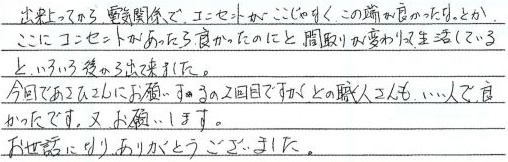 出来上ってから 電気関係で、コンセントがここじゃなく、この端が良かったな。とか
ここにコンセントがあったら良かったのにと 間取りが変わって生活している
と、いろいろ後から出て来ました。
今回であさひさんにお願いするの2回目ですが どの職人さんも、いい人で良
かったです。又 お願いします。
お世話になりありがとうございました。